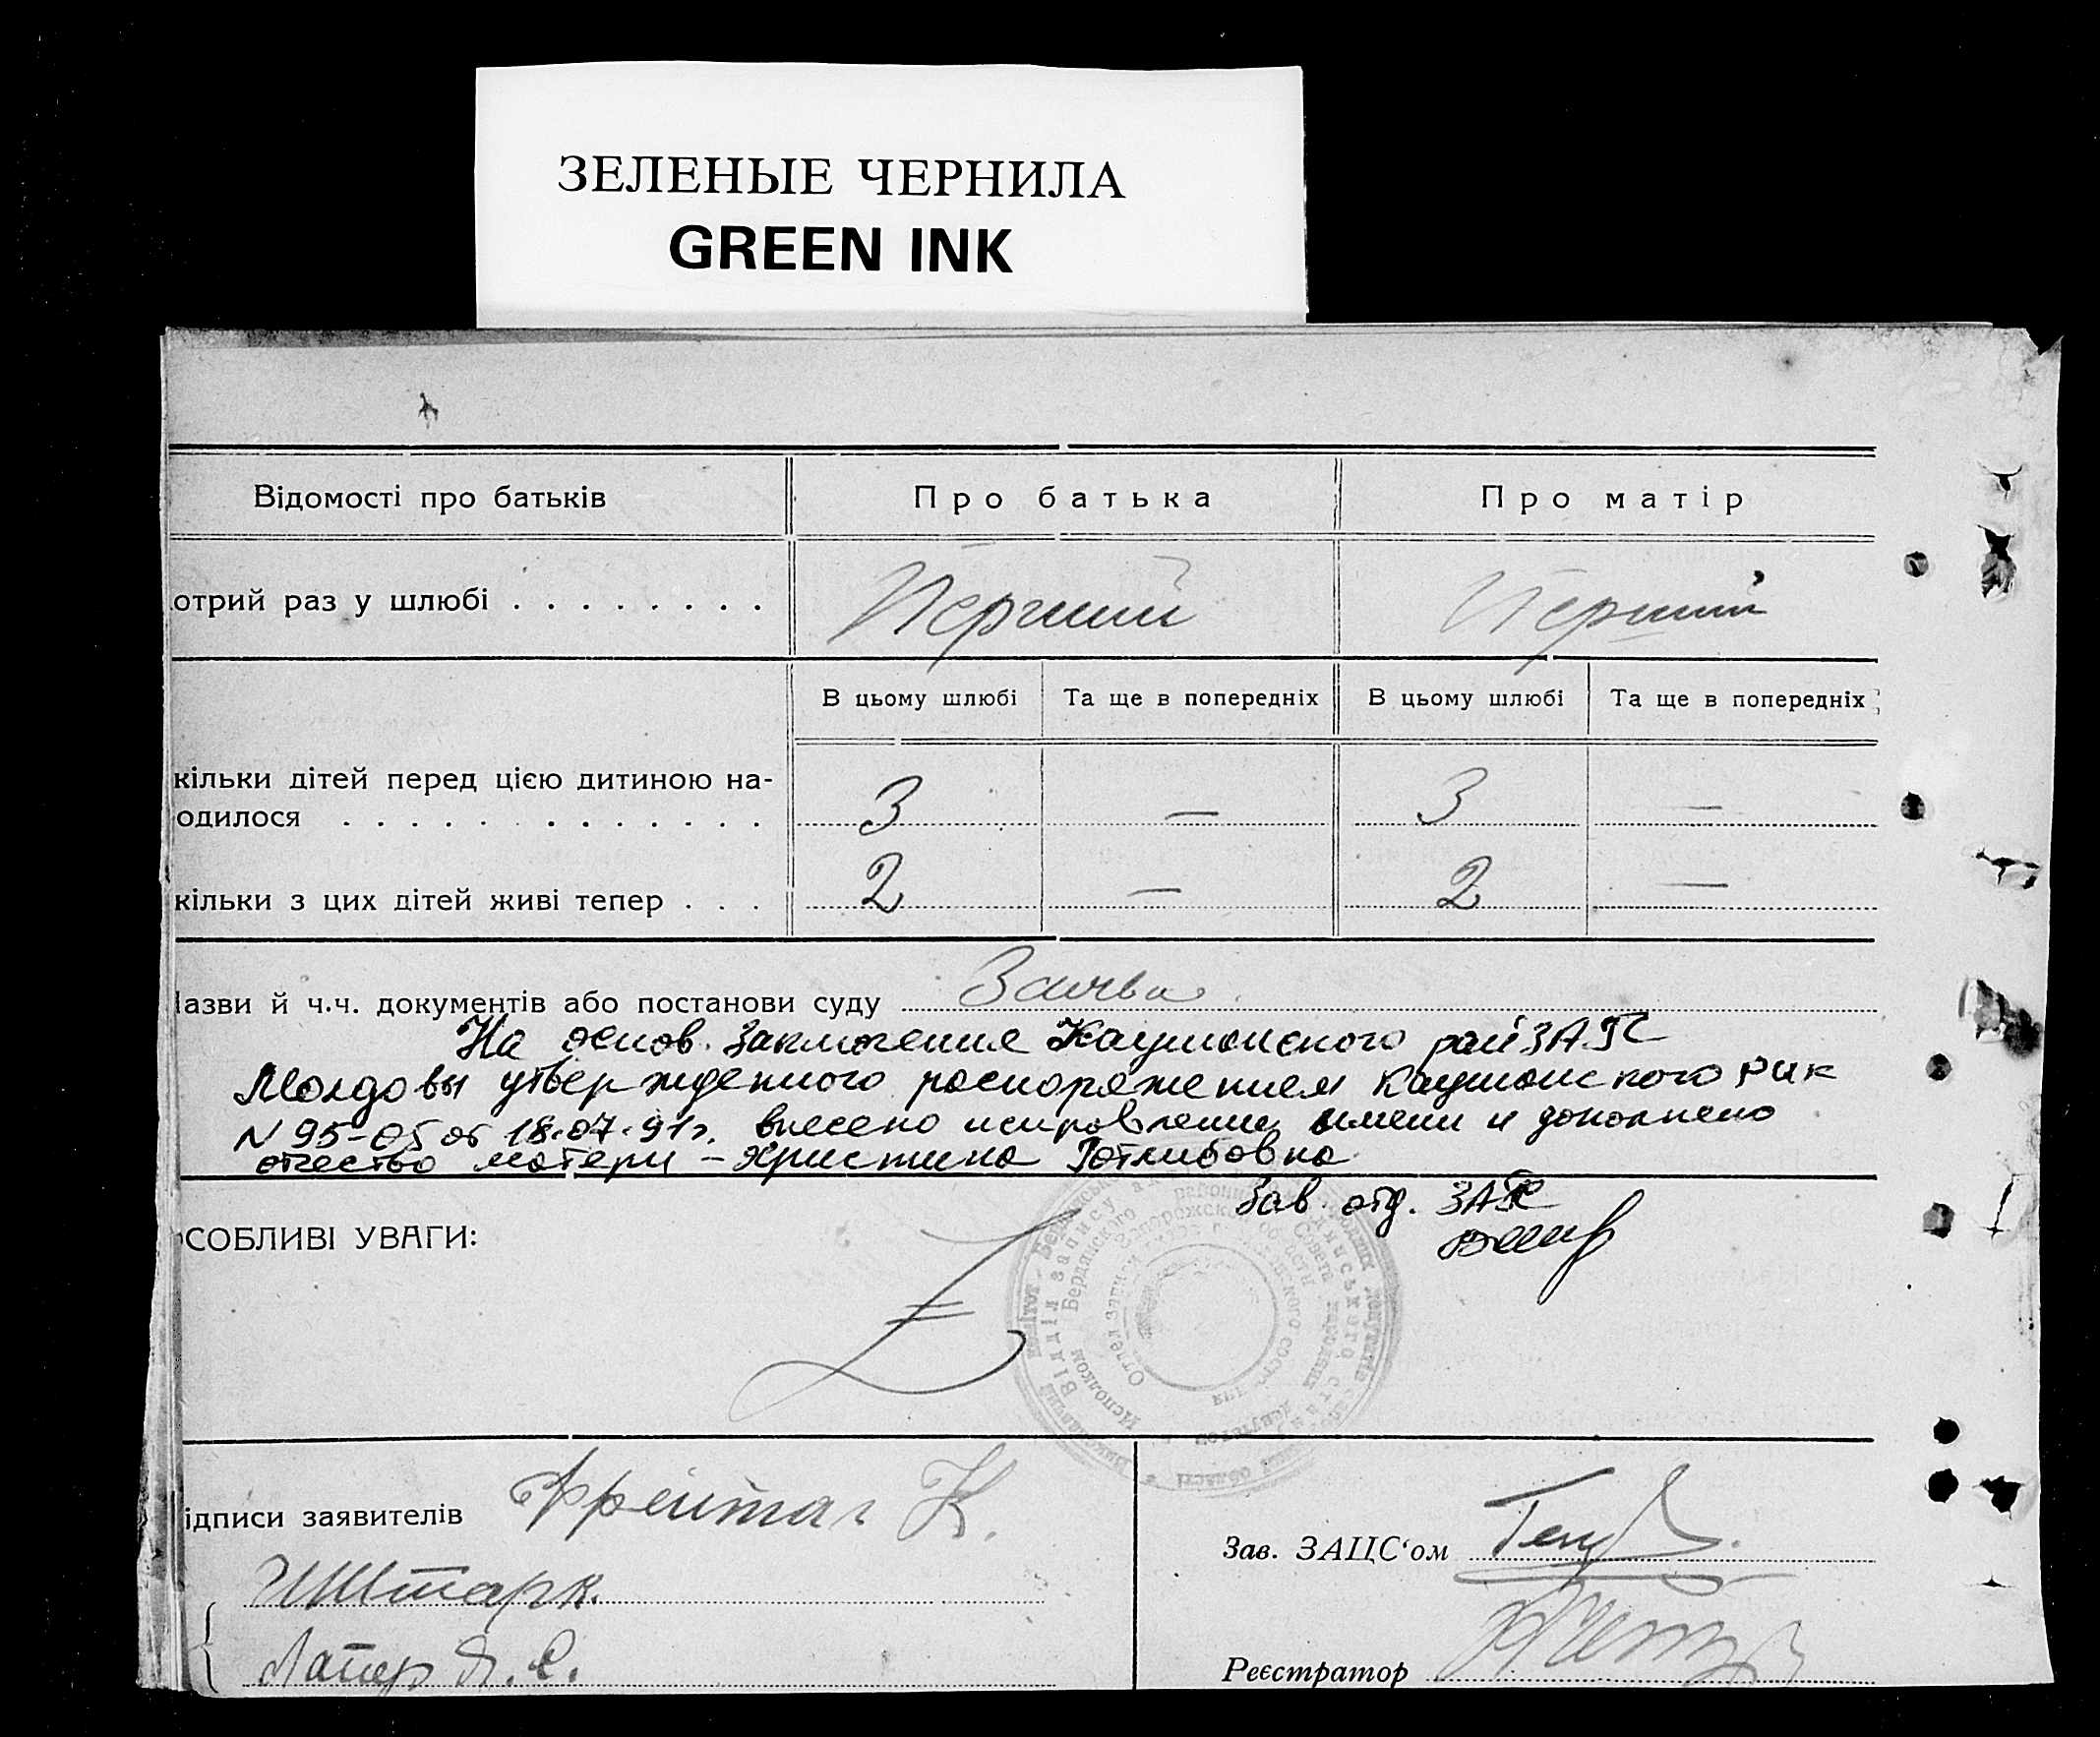 ЗЕЛЕНЫЕ ЧЕРНИЛА
GREEN INK
Відомості про батьків
Про батька
Про матір
отрий раз у шлюбі
Перший
Перший
В цьому шлюбі
Та ще в попередніх
В цьому шлюбі
Та ще в попередніх
кільки дітей перед цією дитиною на-
одилося
3
—
3
—
кільки з цих дітей живі тепер
2
—
2
—
азви й ч.ч. документів або постанови суду
На основ. заключения Каушанского рай ЗАГС
Молдовы утвержденного распоряжением Каушанского рик
N 95-05 от 18.07.91г. внесено исправление имени и дополнено
отчество матери - Христина Готлибовна
Зав. отд. ЗАГС
СОБЛИВІ УВАГИ:
Відділ запису
Бердянского
Запорожской области
Отдел записи
Исполком
ідписи заявителів
Фрейтаг К.
Штарк.
Зав. ЗАЦС'ом
Реєстратор